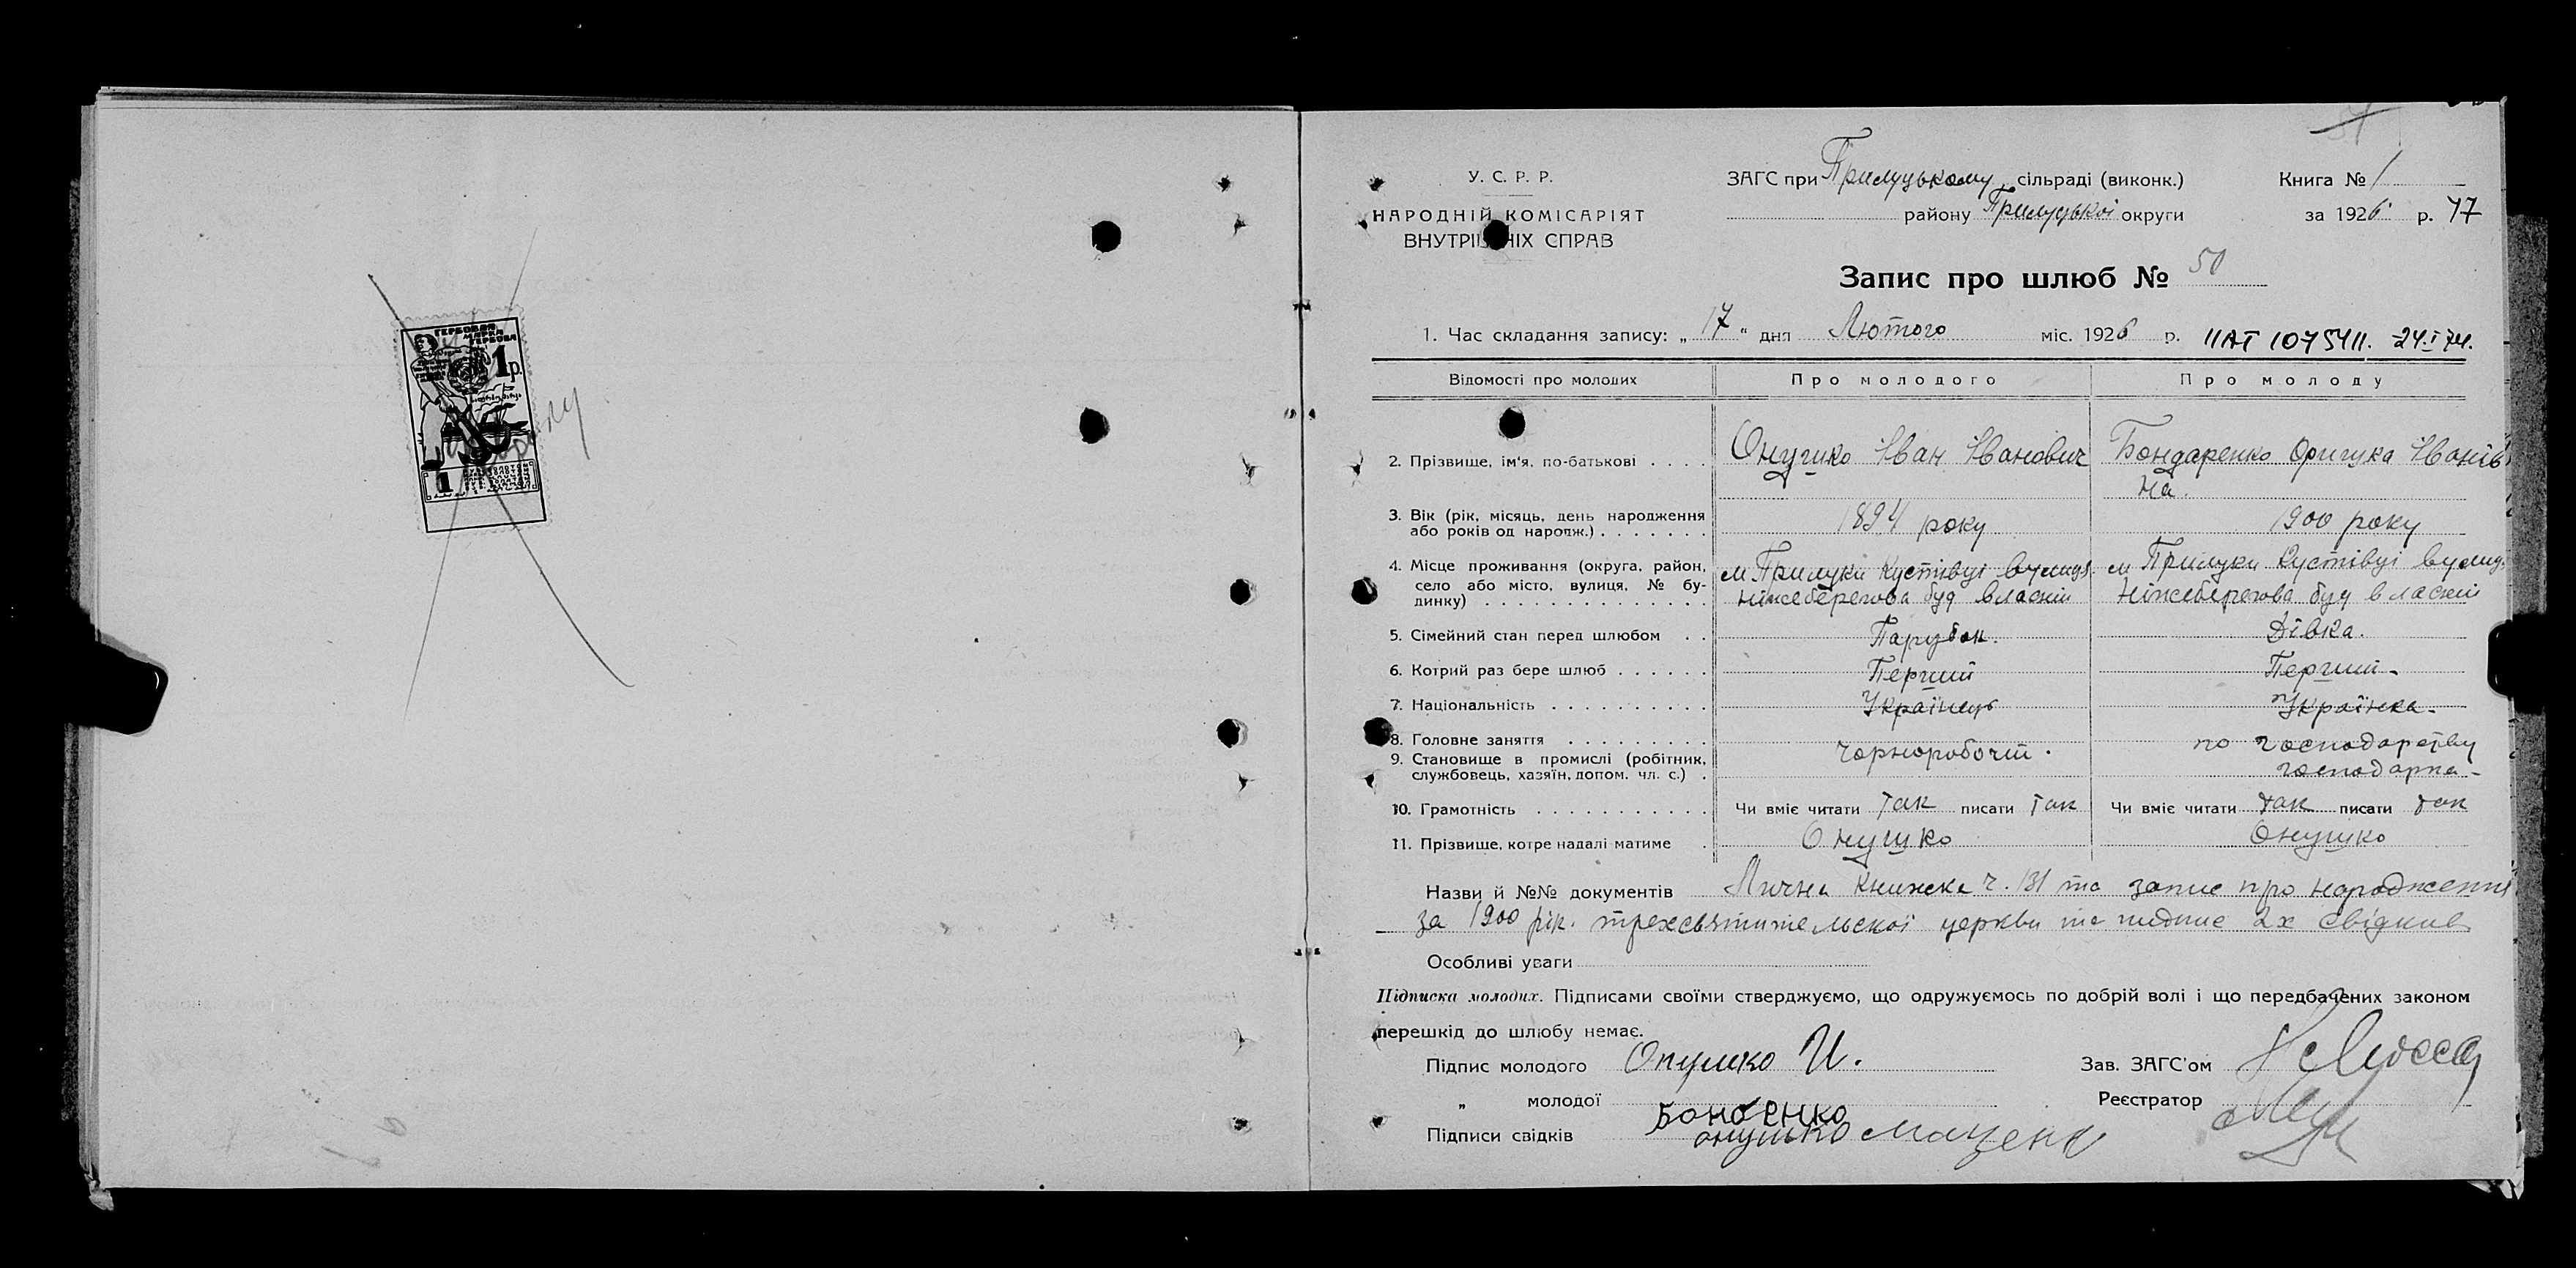 ГЕРБОВАЯ
МАРКА
ГЕРБОВА
1р.
1
У. С. Р. Р.
НАРОДНІЙ КОМІСАРІЯТ
ВНУТРІШНІХ СПРАВ
ЗАГС при Прилуцькому сільраді (виконк.)
району Прилуцької округи
Книга № 1
за 1926 р. 77
Запис про шлюб № 50
1. Час складання запису: „ 17 “ дня Лютого міс. 1926 р. ІІАТ 1075411. 24.І 74.
Відомості про молодих
Про молодого
Про молоду
2. Прізвище, ім'я, по-батькові . . . .
Онушко Іван Іванович
Бондаренко Оришка Іванів
на.
3. Вік (рік, місяць, день народження
або років од народж.) . . . . . . .
1894 року
1900 року
4. Місце проживання (округа, район,
село або місто, вулиця, № бу-
динку) . . . . . . . . . . . . . .
м Прилуки Кустівці вулиця
Ніжеберегова буд власний
м Прилуки Кустівці вулиц.
Ніжеберегова буд власний
5. Сімейний стан перед шлюбом . .
Парубок.
Дівка.
6. Котрий раз бере шлюб . . . . . .
Перший
Перший-
7. Національність . . . . . . . . . .
Українець
Українка-
8. Головне заняття . . . . . . . . .
9. Становище в промислі (робітник,
службовець, хазяїн, допом. чл. с.) .
Чорноробочий.
по господарству
господарка-
10. Грамотність . . . . . . . . . . .
Чи вміє читати так писати так
Чи вміє читати так писати так
11. Прізвище, котре надалі матиме .
Онушко
Онушко
Назви й №№ документів Лична Книжка ч. 131 та запис про народження
за 1900 рік. трехсвятительскої церкви та пидпис 2х свідкив
Особливі уваги
Підписка молодих. Підписами своїми стверджуємо, що одружуємось по добрій волі і що передбачених законом
перешкід до шлюбу немає.
Підпис молодого Онушко И.
Зав. ЗАГС'ом
„ молодої
Реєстратор
Підписи свідків
онушко